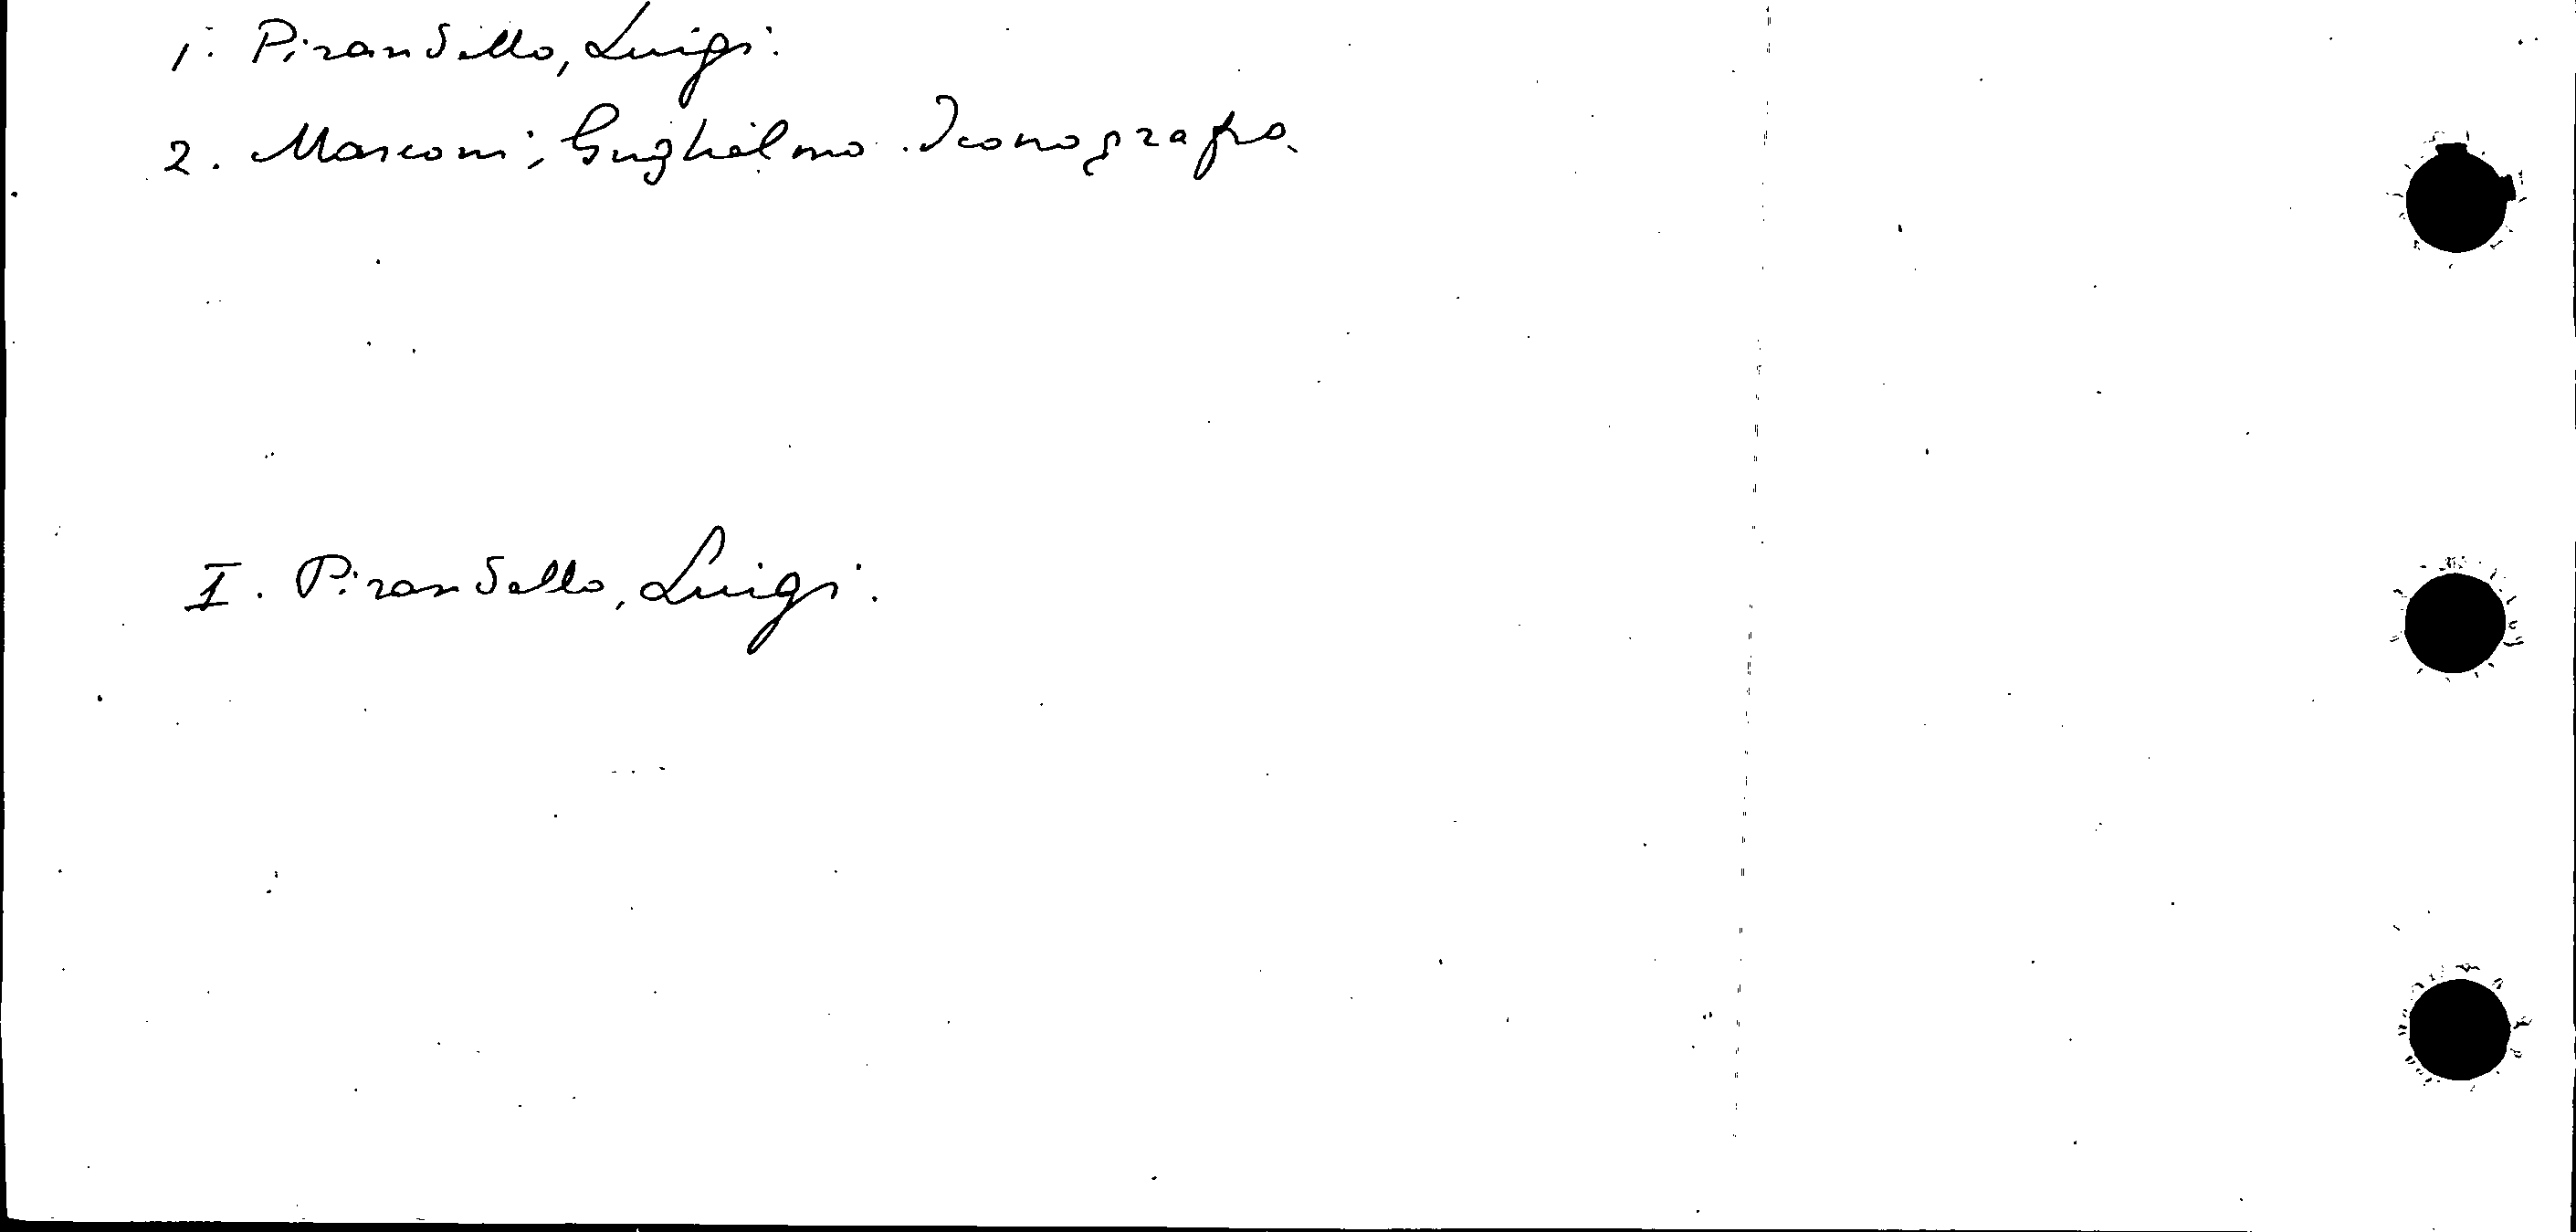 1. Pirandello, Luigi.
2. Marconi, Guglielmo. Iconografia.
I. Pirandello, Luigi.